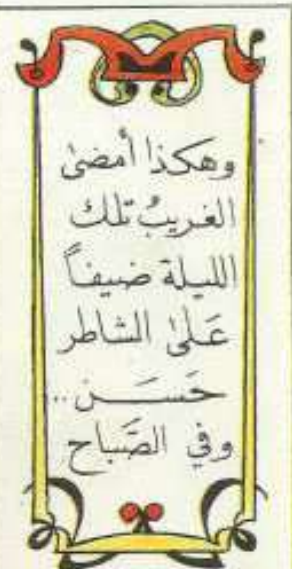 وهكذا أمضىٰ
الغريبُ تلك
الليلة ضيفاً
عَلىٰ الشاطر
حَسَن ..
وفي الصَّباح